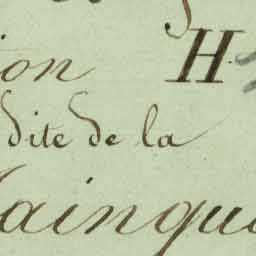 ion H
dite de la
ainqu